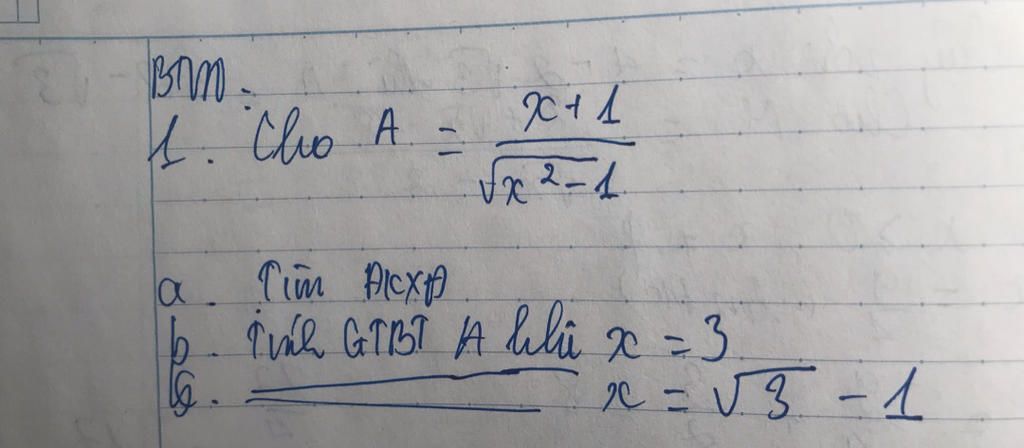 BTVN:
1. Cho A = \frac{x+1}{\sqrt{x^2-1}}
a. Tìm ĐKXĐ
b. Tính GTBT A khi x = 3
c. x = \sqrt{3} - 1